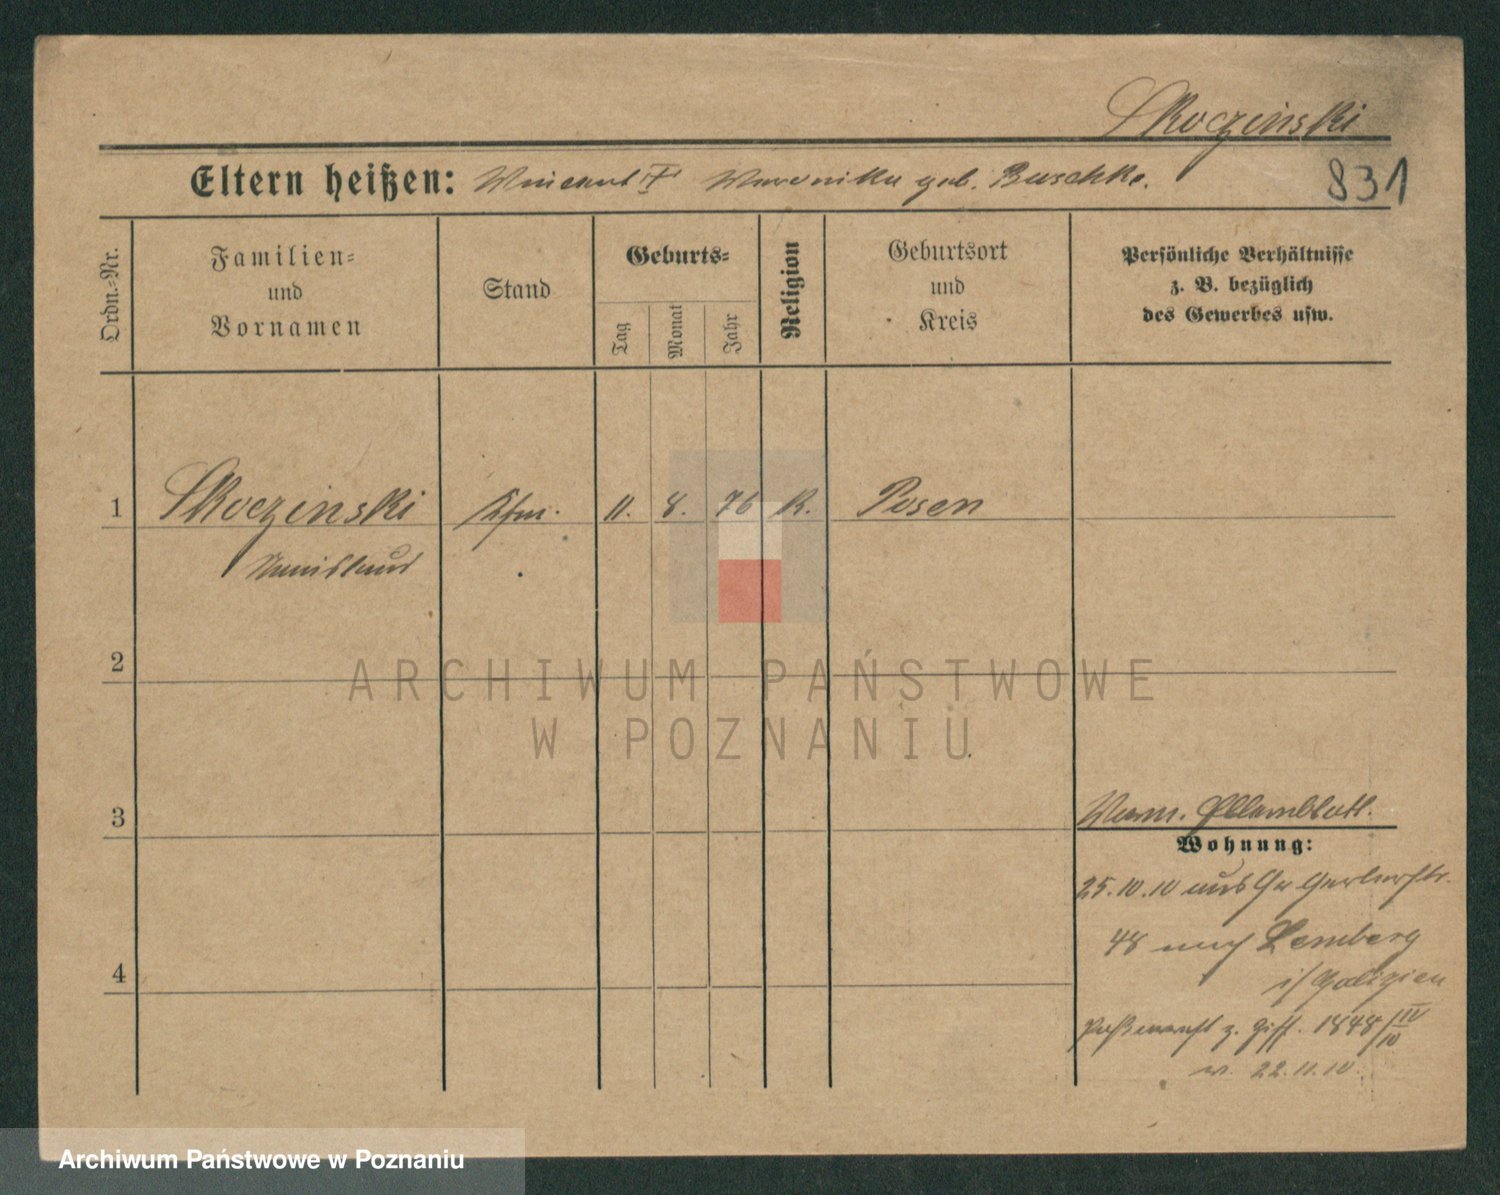 Skoczinski
Eltern heißen: Vincent † Veronika geb. Buschke.
831
Ordn.-Nr.
Familien-
und
Vornamen
Stand
Geburts-
Tag
Monat
Jahr
Religion
Geburtsort
und
Kreis
Persönliche Verhältnisse
z. B. bezüglich
des Gewerbes usw.
1 Skoczinski Kfm. 11. 8. 76 K. Posen
2
ARCHIWUM PAŃSTWOWE
W POZNANIU
3
Wohnung:
25.10.10 aus Gr Gerberstr.
48 nach Lemberg
i/Galizien
4
1848/IV
10
v. 22.11.10
Archiwum Państwowe w Poznaniu